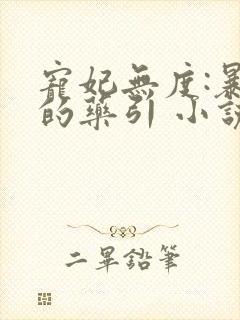 寵妃無度:暴
的藥引 小說
二畢鉛筆